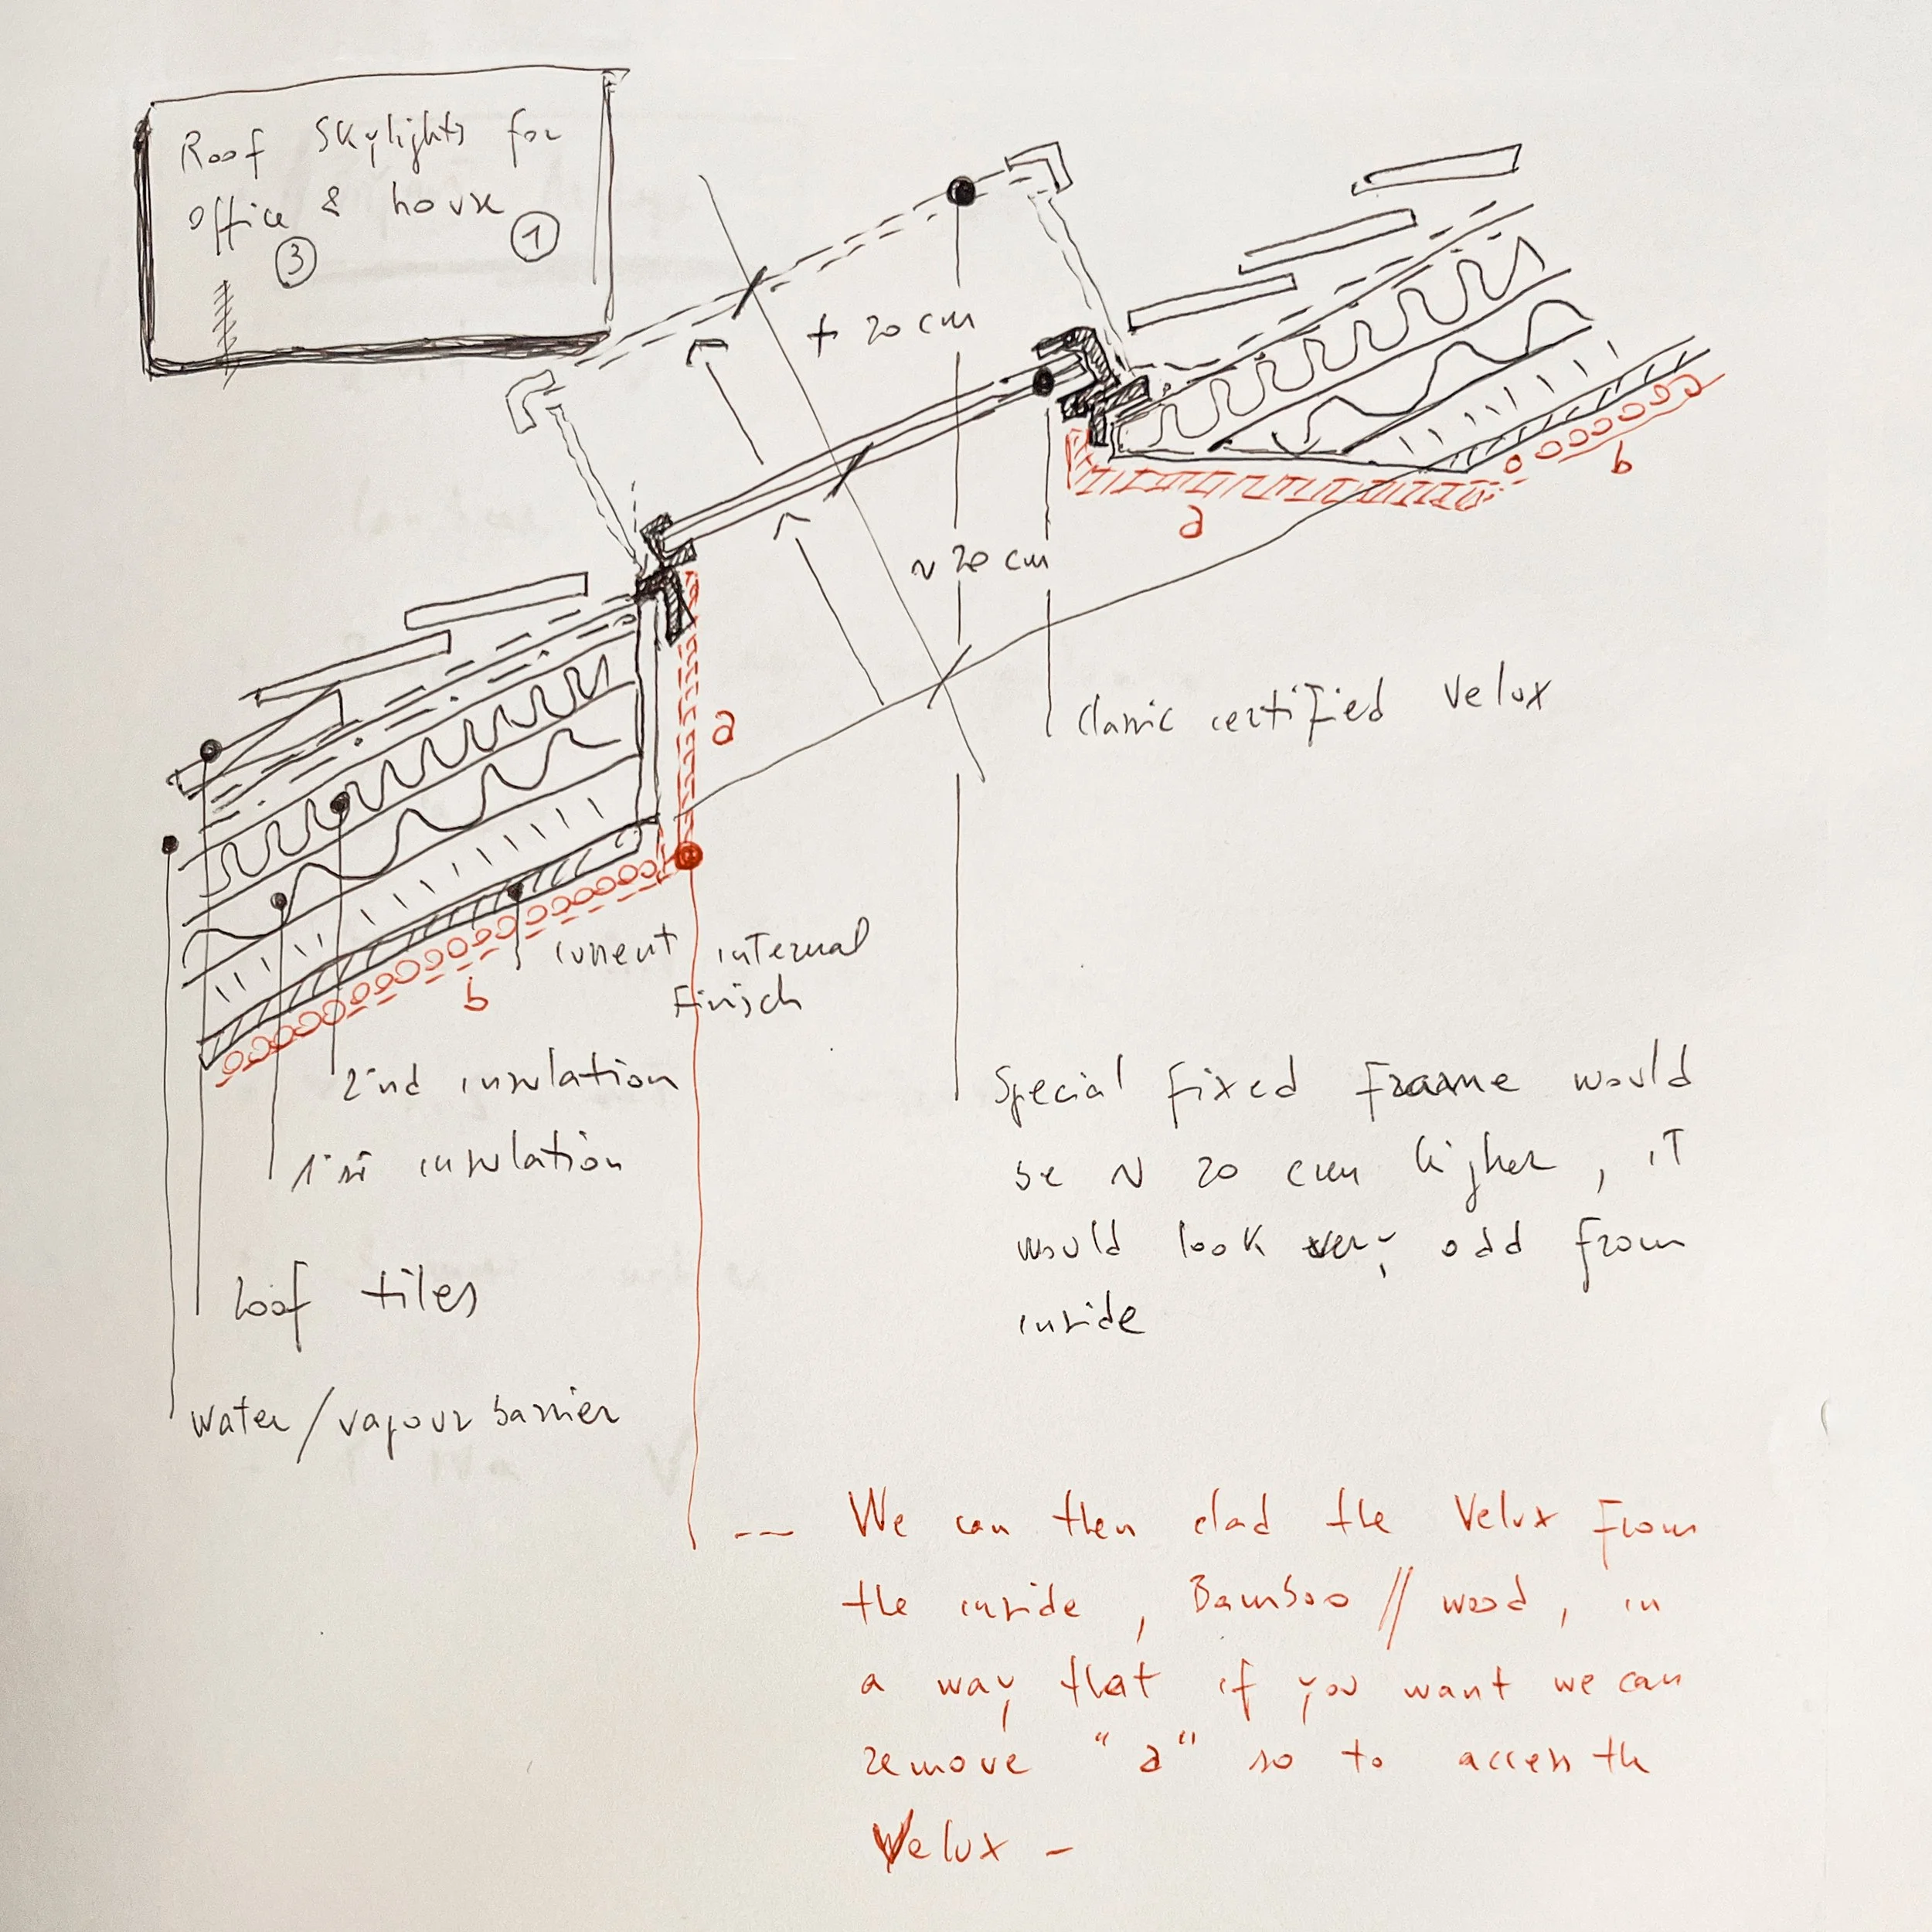 Roof Skylights for
office & house
3 1
+ 20 cm
~ 20 cm
a
b
classic certified Velux
a
b
current internal
Finisch
2nd insulation
1st insulation
Roof tiles
water/vapour barrier
Special fixed frame would
be ~ 20 cm higher, it
would look very odd from
inside
-- We can then clad the Velux from
the inside, Bamboo // wood, in
a way that if you want we can
remove "a" so to access the
Velux -